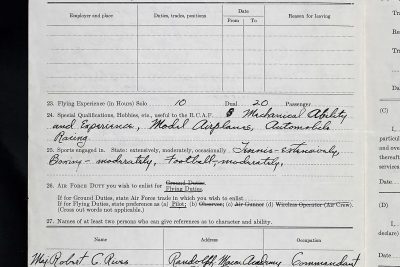 Employer and place Duties, trades, positions Date Reason for leaving
From To
23. Flying Experience (in Hours) Solo 10 Dual 20 Passenger
24. Special Qualifications, Hobbies, etc., useful to the R.C.A.F. Mechanical Ability
and Experience, Model Airplanes, Automobile
Racing.
25. Sports engaged in. State: extensively, moderately, occasionally Tennis-Extensively
Boxing - moderately, Football, moderately,
26. AIR FORCE DUTY you wish to enlist for Ground Duties.
Flying Duties.
If for Ground Duties, state Air Force trade in which you wish to enlist
If for Flying Duties, state preference as (a) Pilot; (b) Observer; (c) Air Gunner (d) Wireless Operator (Air Crew).
(Cross out words not applicable.)
27. Names of at least two persons who can give references as to character and ability.
Name Address Occupation
Maj. Robert C. Randolph Macon Academy Commandant
(C)
I,
Date
(D)
I,